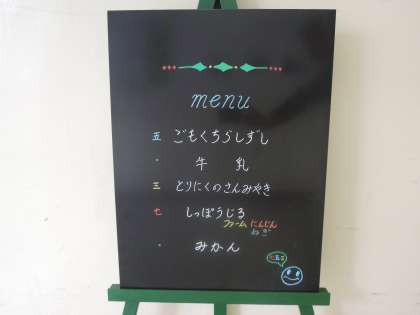 menu
五 ごもくちらしずし
・ 牛 乳
三 とりにくのさんみやき
七 しっぽうじる
ファーム にんじん
ねぎ
・ みかん